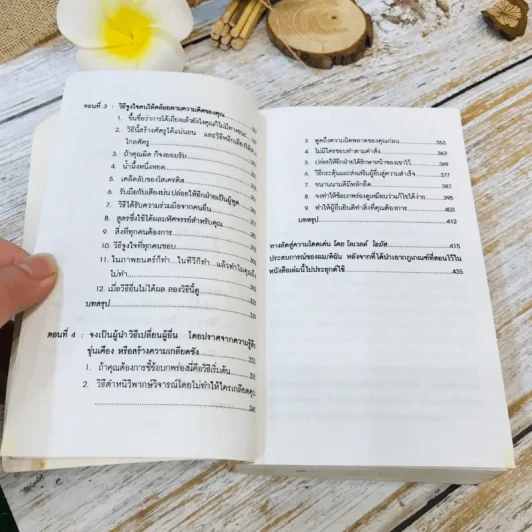 ตอนที่ 3 : วิธีจูงใจคนให้คล้อยตามความคิดของคุณ
1. ขึ้นชื่อว่าการโต้เถียงแล้วยังไงคุณก็ไม่มีทางชนะ
2. วิธีนี้สร้างศัตรูได้แน่นอน และวิธีหลีกเลี่ยงให้
ไกลศัตรู
3. ถ้าคุณผิด ก็จงยอมรับ
4. น้ำผึ้งหนึ่งหยด
5. เคล็ดลับของโสเครติส
6. รับมือกับเสียงบ่นปล่อยให้อีกฝ่ายเป็นผู้พูด
7. วิธีได้รับความร่วมมือจากคนอื่น
8. สูตรซึ่งใช้ได้ผลมหัศจรรย์สำหรับคุณ
9. สิ่งที่ทุกคนต้องการ
10. วิธีจูงใจที่ทุกคนชอบ
11. ในภาพยนตร์ก็ทำ...ในทีวีก็ทำ แล้วทำไมคุณไม่
ทำ
12. เมื่อวิธีอื่นไม่ได้ผล ลองวิธีนี้ดู
บทสรุป
ตอนที่ 4 : จงเป็นผู้นำ วิธีเปลี่ยนผู้อื่น โดยปราศจากความรู้สึก
ขุ่นเคือง หรือสร้างความเกลียดชัง
1. ถ้าคุณต้องการชี้ข้อบกพร่องนี่คือวิธีเริ่มต้น
2. วิธีตำหนิวิพากษ์วิจารณ์โดยไม่ทำให้ใครเกลียดคุณ
3. พูดถึงความผิดพลาดของคุณก่อน 353
4. ไม่มีใครชอบทำตามคำสั่ง 363
5. ปล่อยให้อีกฝ่ายได้รักษาหน้าของเขาไว้ 369
6. วิธีกระตุ้นและส่งเสริมผู้อื่นสู่ความสำเร็จ 377
7. ขนานนามดีมีหลักยึด 387
8. จงทำให้ข้อบกพร่องดูเหมือนว่าแก้ไขได้ง่าย 395
9. ทำให้ผู้อื่นยินดีทำสิ่งที่คุณต้องการ 403
บทสรุป 412
ทางลัดสู่ความโดดเด่น โดย โลเวลล์ โธมัส 415
ประสบการณ์ของผม/ดิฉัน หลังจากที่ได้นำเอากฎเกณฑ์ที่สอนไว้ใน
หนังสือเล่มนี้ไปประยุกต์ใช้ 435